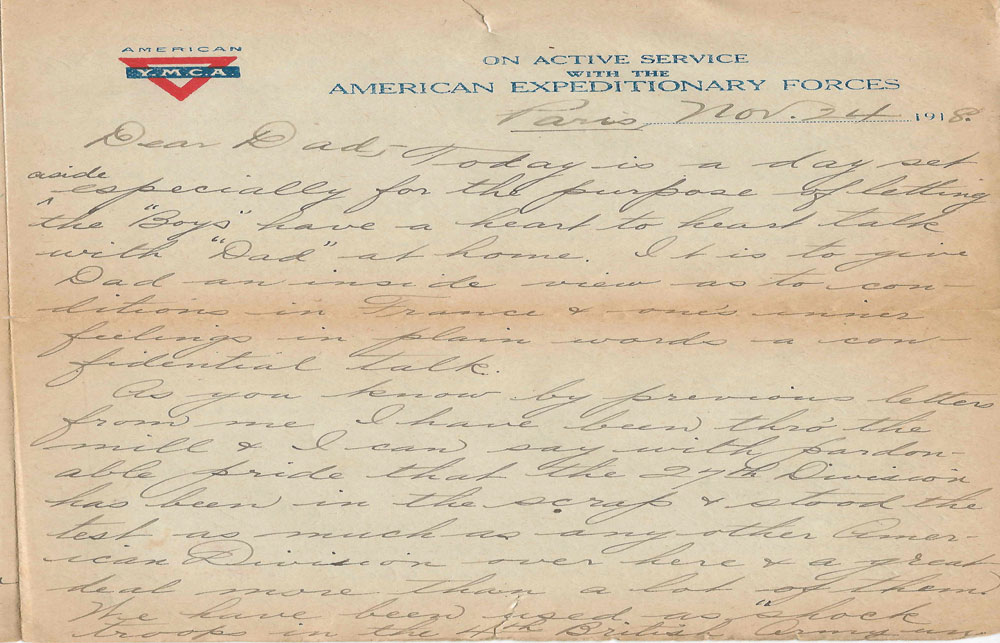 AMERICAN
Y.M.C.A.
ON ACTIVE SERVICE
WITH THE
AMERICAN EXPEDITIONARY FORCES
Paris, Nov. 24 1918.
Dear Dad,- Today is a day set
aside especially for the purpose of letting
the "Boys" have a heart to heart talk
with "Dad" at home. It is to give
Dad an inside view as to con-
ditions in France & one's inner
feelings in plain words a con-
fidential talk.
As you know by previous letters
from me I have been thro the
mill & I can say with pardon-
able pride that the 27th Division
has been in the scrap & stood the
test as much as any other Amer-
ican Division over here & a great
deal more than a lot of them.
We have been used as "shock
troops in the 4th British Army